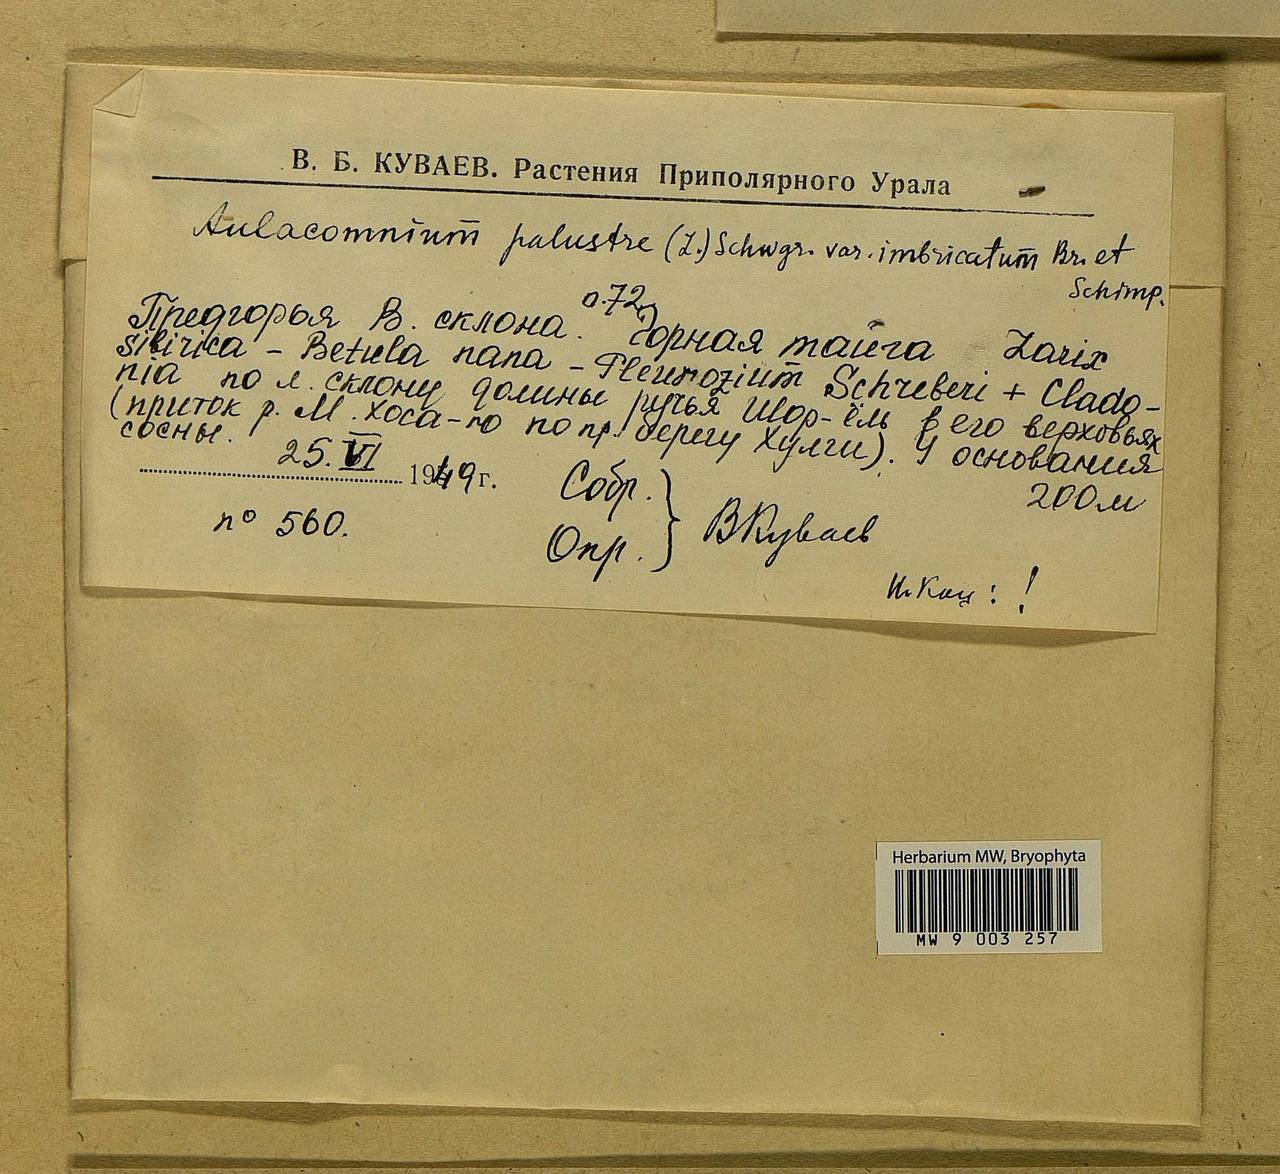 В. Б. КУВАЕВ. Растения Приполярного Урала
Aulacomnium̄ palustre (L.) Schwgr. var. imbricatum̄ Br. et
Schimp.
о.72.
Предгорья В. склона. Горная тайга Larix
sibirica - Betula nana - Pleurozium̄ Schreberi + Clado-
nia по л. склону долины ручья Шор-ёль в его верховьях
(приток р. М. Хоса-ю по пр. берегу Хулги). У основания
сосны.
200м
25.VI 1949 г.
nº 560.
Собр. } ВКуваев
Опр.
И. Кац : !
Herbarium MW, Bryophyta
MW 9 003 257